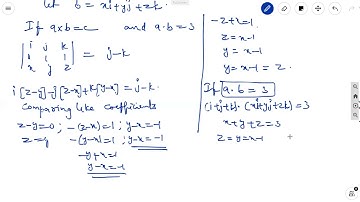 let b = xi+yj+zk.
If axb=c and a·b=3
| i j k |
| 0 1 1 | = j-k
| x y z |
i[z-y]-j[z-x]+k[y-x]=j-k.
Comparing like coefficients
z-y=0; -(z-x)=1; y-x=-1
z=y -(y-x)=1; y-x=-1
-y+x=1
y-x=-1
-z+x=1.
z=x-1
y=x-1
y=x-1=z.
If a·b=3
(i+j+k)·(xi+yj+zk)=3
x+y+z=3
z=y=x-1